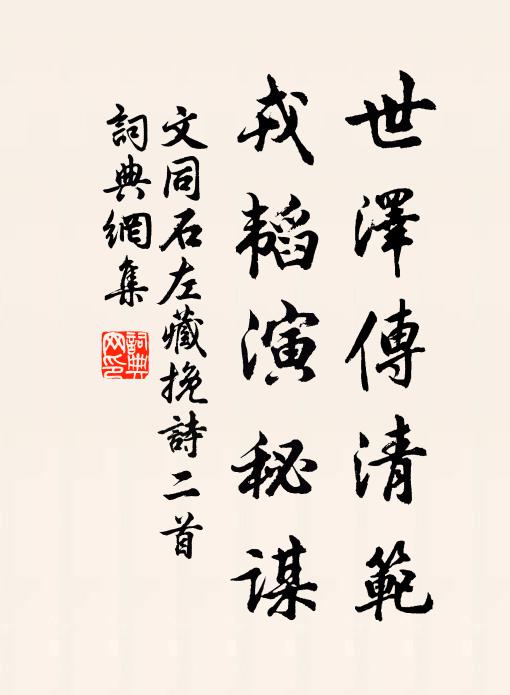 世澤傳清範
戎韜演秘謀
文同石左藏挽詩二首
詞典網集
詞典網印